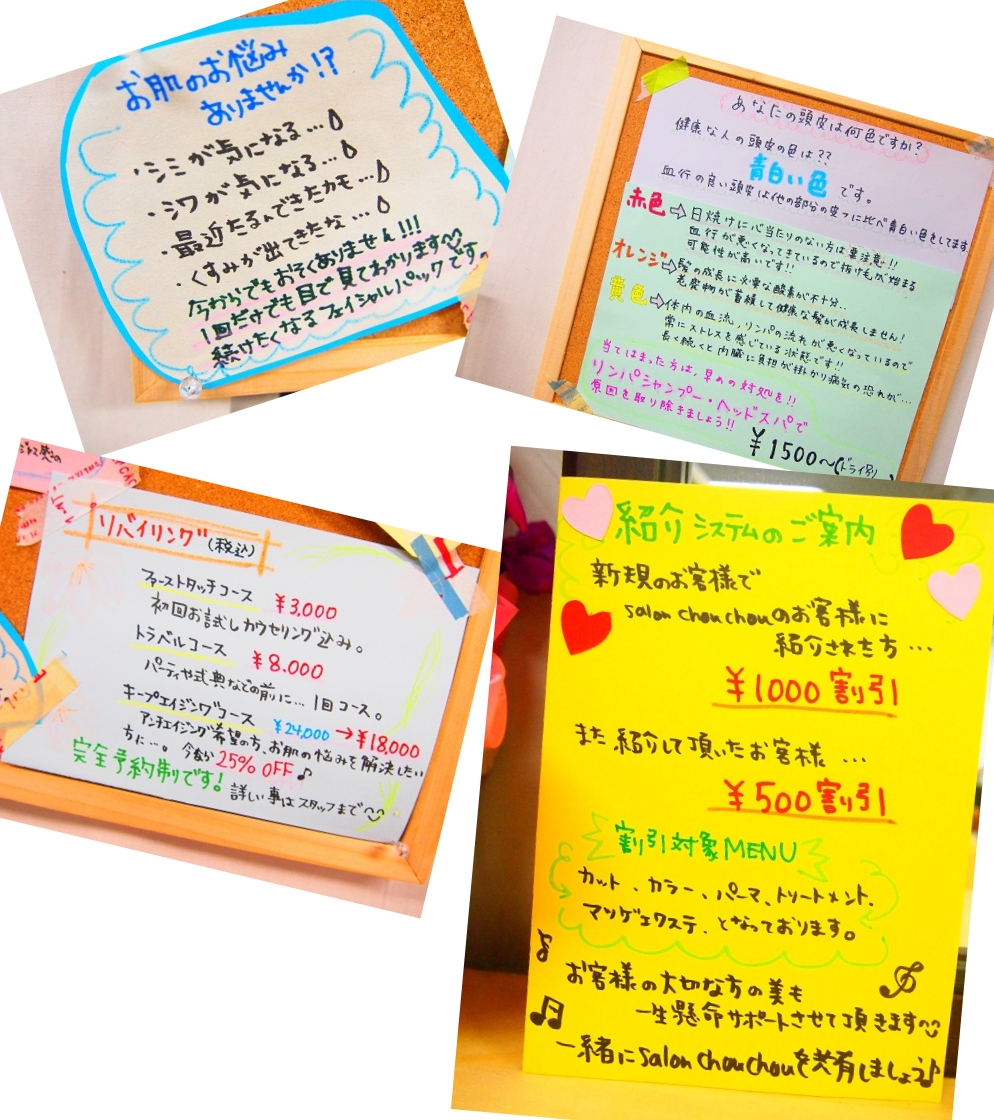 お肌のお悩み
ありませんか!?
・シミが気になる…
・シワが気になる…
・最近たるんできたカモ…
・くすみが出てきたな…
今からでもおそくありません!!!
1回だけでも目で見てわかります
続けたくなるフェイシャルパックですの
あなたの頭皮は何色ですか?
健康な人の頭皮の色は??
青白い色です。
血行の良い頭皮は他の部分の皮フに比べ青白い色をしてます
赤色⇨日焼けに心当たりのない方は要注意!!
血行が悪くなってきているので抜け毛が始まる
可能性が高いです!!
オレンジ⇨髪の成長に必要な酸素が不十分…
老廃物が蓄積して健康な髪が成長しません!
黄色⇨体内の血流,リンパの流れが悪くなっているので
常にストレスを感じている状態です!!
長く続くと内臓に負担が掛かり病気の恐れが…
当てはまった方は,早めの対処を!!
リンパシャンプー・ヘッドスパで
原因を取り除きましょう!!
¥1500~(ドライ別)
リバイリング(税込)
ファーストタッチコース ¥3,000
初回お試しカウセリング込み。
トラベルコース ¥8.000
パーティや式典などの前に…1回コース。
キープエイジングコース ¥24,000→¥18,000
アンチエイジング希望の方、お肌の悩みを解決したい
方に…。今なら25%OFF♪
完全予約制です!
詳しい事はスタッフまで
紹介システムのご案内
新規のお客様で
salon chouchouのお客様に
紹介された方…
¥1000割引
また紹介して頂いたお客様…
¥500割引
割引対象MENU
カット、カラー、パーマ、トリートメント、
マツゲエクステ、となっております。
お客様の大切な方の美も
一生懸命サポートさせて頂きます
一緒にsalon chouchouを共有しましょう♪